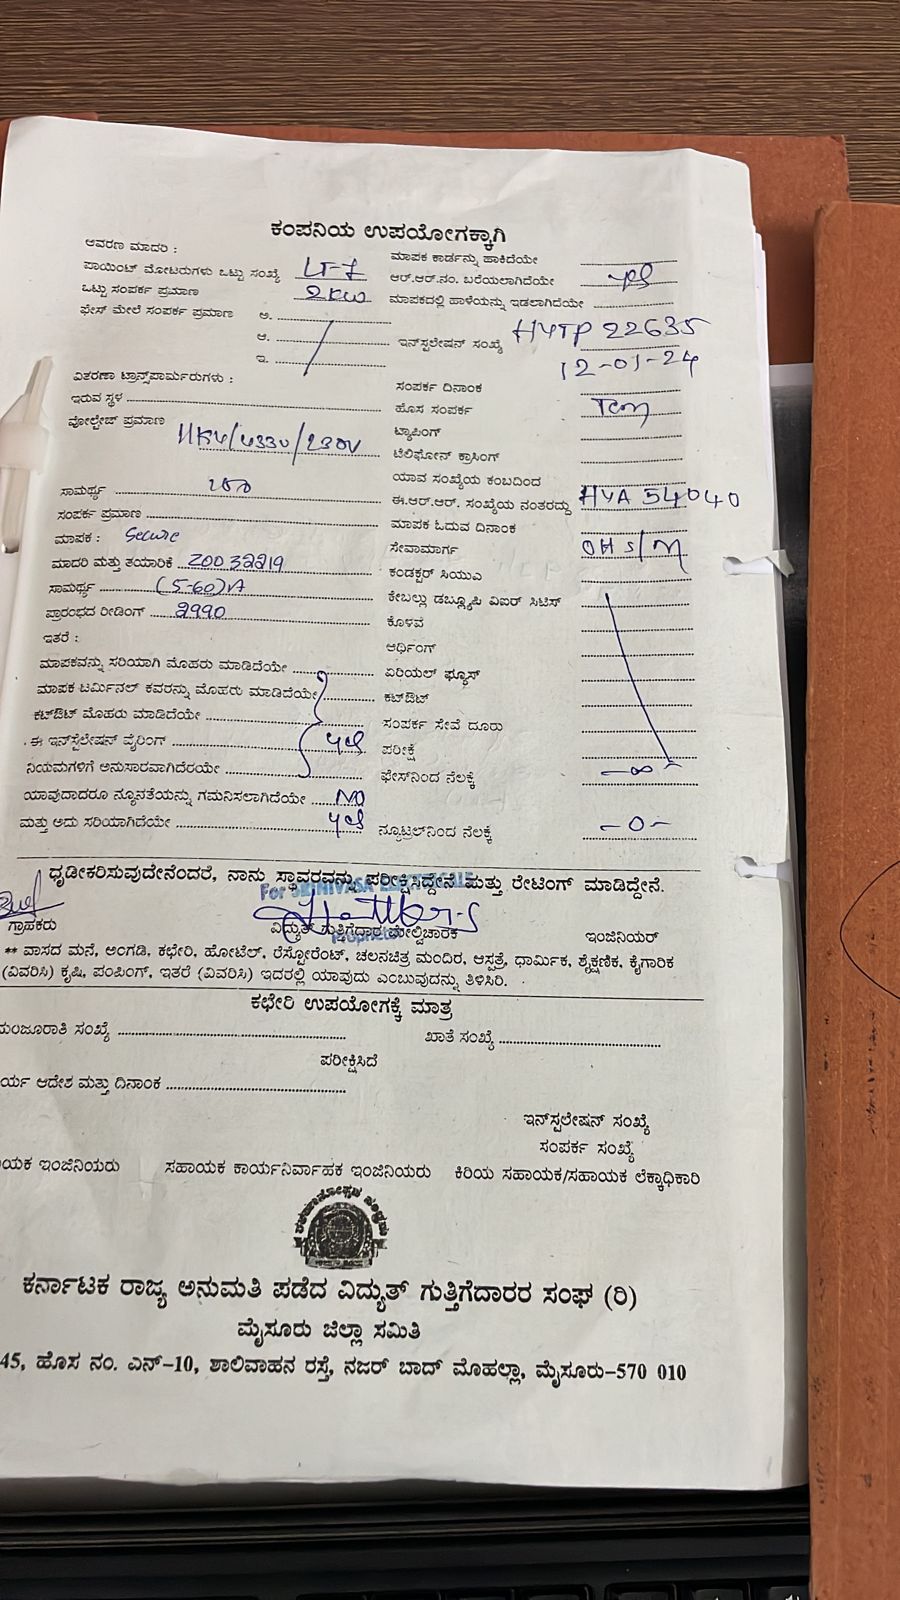 ಕಂಪನಿಯ ಉಪಯೋಗಕ್ಕಾಗಿ
ಆವರಣ ಮಾದರಿ : ಮಾಪಕ ಕಾರ್ಡನ್ನು ಹಾಕಿದೆಯೇ
ಪಾಯಿಂಟ್ ಮೋಟರುಗಳು ಒಟ್ಟು ಸಂಖ್ಯೆ LT-7 ಆರ್.ಆರ್.ನಂ. ಬರೆಯಲಾಗಿದೆಯೇ yes
ಒಟ್ಟು ಸಂಪರ್ಕ ಪ್ರಮಾಣ 2KW ಮಾಪಕದಲ್ಲಿ ಹಾಳೆಯನ್ನು ಇಡಲಾಗಿದೆಯೇ
ಫೇಸ್ ಮೇಲೆ ಸಂಪರ್ಕ ಪ್ರಮಾಣ ಅ.
ಆ. ಇನ್‌ಸ್ಟಲೇಷನ್ ಸಂಖ್ಯೆ HYTP 22635
ಇ. 12-01-24
ವಿತರಣಾ ಟ್ರಾನ್ಸ್‌ಪಾರ್ಮರುಗಳು : ಸಂಪರ್ಕ ದಿನಾಂಕ
ಇರುವ ಸ್ಥಳ ಹೊಸ ಸಂಪರ್ಕ Tem
ವೋಲ್ಟೇಜ್ ಪ್ರಮಾಣ 11KV/433V/230V ಟ್ಯಾಪಿಂಗ್
ಟೆಲಿಫೋನ್ ಕ್ರಾಸಿಂಗ್
ಯಾವ ಸಂಖ್ಯೆಯ ಕಂಬದಿಂದ
ಸಾಮರ್ಥ್ಯ ಈ.ಆರ್.ಆರ್. ಸಂಖ್ಯೆಯ ನಂತರದ್ದು HYA 54040
ಸಂಪರ್ಕ ಪ್ರಮಾಣ ಮಾಪಕ ಓದುವ ದಿನಾಂಕ
ಮಾಪಕ : Secure ಸೇವಾಮಾರ್ಗ OH S/M
ಮಾದರಿ ಮತ್ತು ತಯಾರಿಕೆ Z0032219 ಕಂಡಕ್ಟರ್ ಸಿಯುಎ
ಸಾಮರ್ಥ್ಯ (5-60)A ಕೇಬಲ್ಲು ಡಬ್ಲ್ಯೂಪಿ ವಿಐರ್ ಸಿಟಿಸ್
ಪ್ರಾರಂಭದ ರೀಡಿಂಗ್ 2990 ಕೊಳವೆ
ಇತರೆ : ಆರ್ಥಿಂಗ್
ಮಾಪಕವನ್ನು ಸರಿಯಾಗಿ ಮೊಹರು ಮಾಡಿದೆಯೇ ಏರಿಯಲ್ ಫ್ಯೂಸ್
ಮಾಪಕ ಟರ್ಮಿನಲ್ ಕವರನ್ನು ಮೊಹರು ಮಾಡಿದೆಯೇ ಕಟ್‌ಔಟ್
ಕಟ್‌ಔಟ್ ಮೊಹರು ಮಾಡಿದೆಯೇ ಸಂಪರ್ಕ ಸೇವೆ ದೂರು
ಈ ಇನ್‌ಸ್ಟಲೇಷನ್ ವೈರಿಂಗ್ yes ಪರೀಕ್ಷೆ
ನಿಯಮಗಳಿಗೆ ಅನುಸಾರವಾಗಿದೆರಯೇ ಫೇಸ್‌ನಿಂದ ನೆಲಕ್ಕೆ -∞-
ಯಾವುದಾದರೂ ನ್ಯೂನತೆಯನ್ನು ಗಮನಿಸಲಾಗಿದೆಯೇ NO
ಮತ್ತು ಅದು ಸರಿಯಾಗಿದೆಯೇ yes ನ್ಯೂಟ್ರಲ್‌ನಿಂದ ನೆಲಕ್ಕೆ -0-
ಧೃಡೀಕರಿಸುವುದೇನೆಂದರೆ, ನಾನು ಸ್ಥಾವರವನ್ನು ಪರೀಕ್ಷಿಸಿದ್ದೇನೆ ಮತ್ತು ರೇಟಿಂಗ್ ಮಾಡಿದ್ದೇನೆ.
ಗ್ರಾಹಕರು ವಿದ್ಯುತ್ ಗುತ್ತಿಗೆದಾರ ಮೇಲ್ವಿಚಾರಕ ಇಂಜಿನಿಯರ್
** ವಾಸದ ಮನೆ, ಅಂಗಡಿ, ಕಛೇರಿ, ಹೋಟೆಲ್, ರೆಸ್ಟೋರೆಂಟ್, ಚಲನಚಿತ್ರ ಮಂದಿರ, ಆಸ್ಪತ್ರೆ, ಧಾರ್ಮಿಕ, ಶೈಕ್ಷಣಿಕ, ಕೈಗಾರಿಕ
(ವಿವರಿಸಿ) ಕೃಷಿ, ಪಂಪಿಂಗ್, ಇತರೆ (ವಿವರಿಸಿ) ಇದರಲ್ಲಿ ಯಾವುದು ಎಂಬುವುದನ್ನು ತಿಳಿಸಿರಿ.
ಕಛೇರಿ ಉಪಯೋಗಕ್ಕೆ ಮಾತ್ರ
ಮಂಜೂರಾತಿ ಸಂಖ್ಯೆ ಖಾತೆ ಸಂಖ್ಯೆ
ಪರೀಕ್ಷಿಸಿದೆ
ರ್ಯ ಆದೇಶ ಮತ್ತು ದಿನಾಂಕ
ಇನ್‌ಸ್ಟಲೇಷನ್ ಸಂಖ್ಯೆ
ಸಂಪರ್ಕ ಸಂಖ್ಯೆ
ಯಕ ಇಂಜಿನಿಯರು ಸಹಾಯಕ ಕಾರ್ಯನಿರ್ವಾಹಕ ಇಂಜಿನಿಯರು ಕಿರಿಯ ಸಹಾಯಕ/ಸಹಾಯಕ ಲೆಕ್ಕಾಧಿಕಾರಿ
ಕರ್ನಾಟಕ ರಾಜ್ಯ ಅನುಮತಿ ಪಡೆದ ವಿದ್ಯುತ್ ಗುತ್ತಿಗೆದಾರರ ಸಂಘ (ರಿ)
ಮೈಸೂರು ಜಿಲ್ಲಾ ಸಮಿತಿ
45, ಹೊಸ ನಂ. ಎನ್-10, ಶಾಲಿವಾಹನ ರಸ್ತೆ, ನಜರ್ ಬಾದ್ ಮೊಹಲ್ಲಾ, ಮೈಸೂರು-570 010